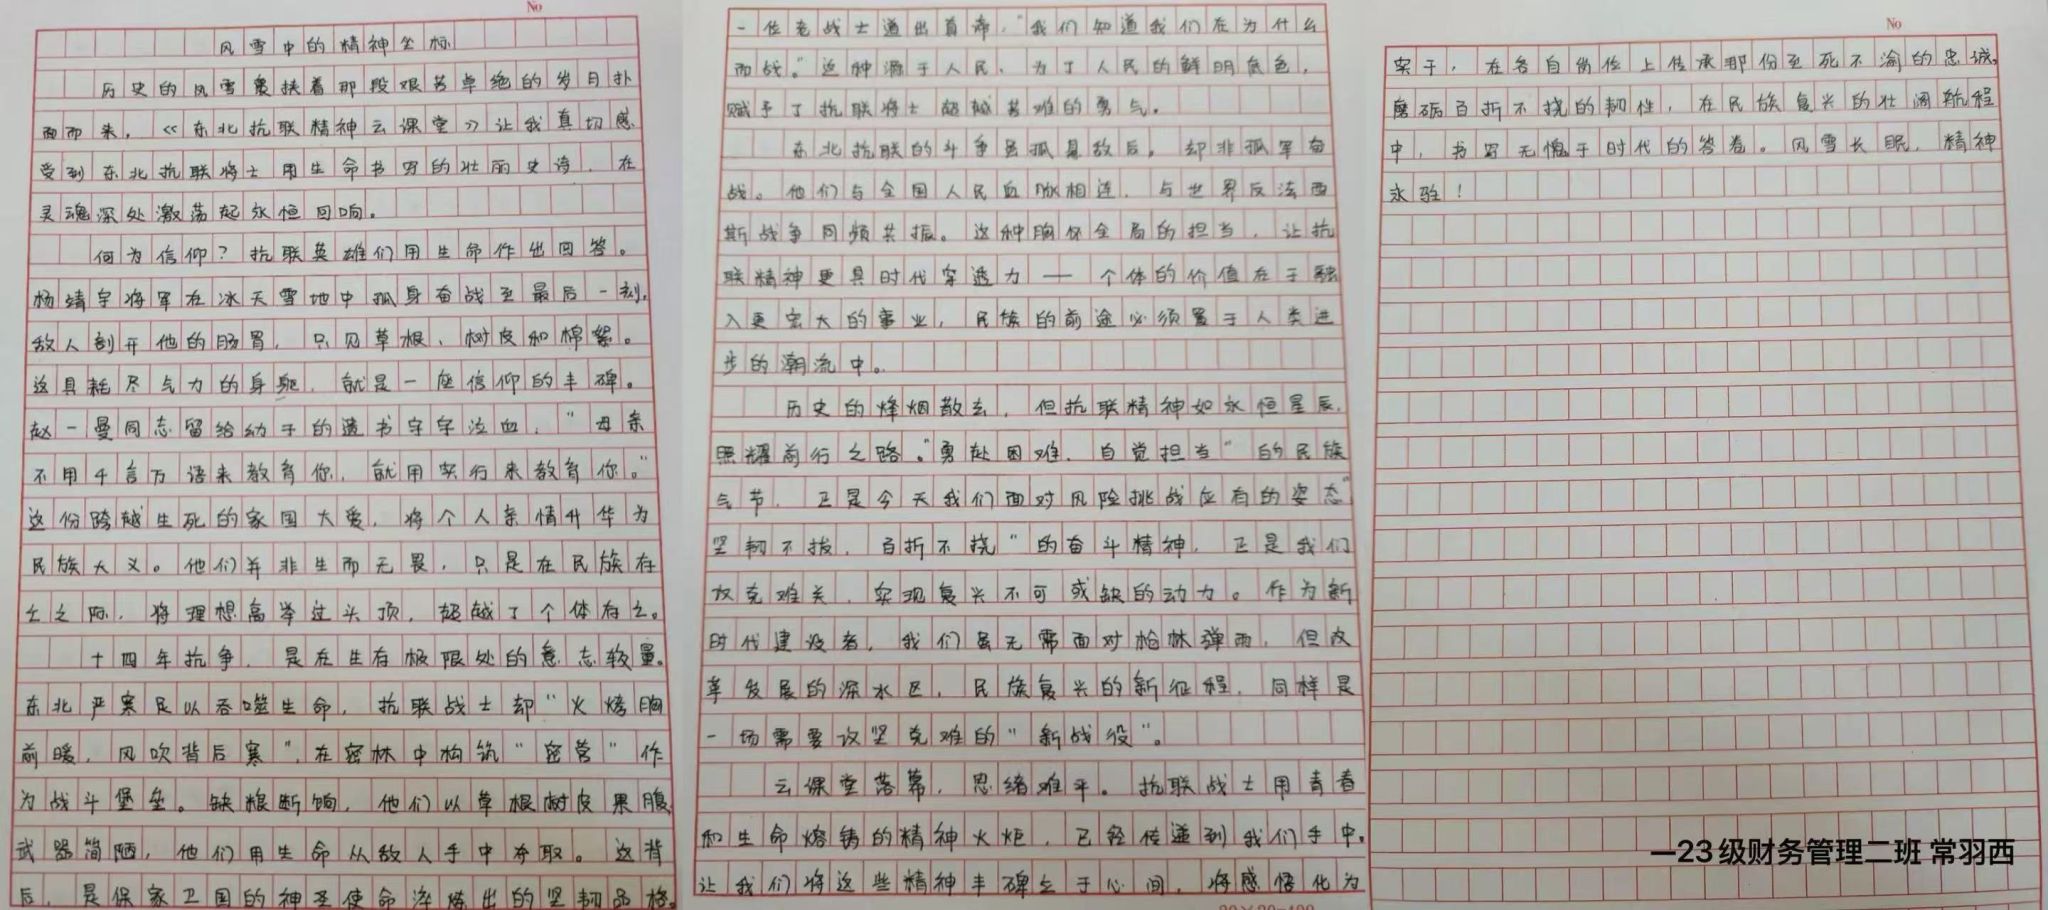 No
风雪中的精神坐标
历史的风雪裹挟着那段艰苦卓绝的岁月扑
面而来，《东北抗联精神云课堂》让我真切感
受到东北抗联将士用生命书写的壮丽史诗，在
灵魂深处激荡起永恒回响。
何为信仰？抗联英雄们用生命作出回答。
杨靖宇将军在冰天雪地中孤身奋战至最后一刻，
敌人剖开他的肠胃，只见草根、树皮和棉絮。
这具耗尽气力的身躯，就是一座信仰的丰碑。
赵一曼同志留给幼子的遗书字字泣血，“母亲
不用千言万语来教育你，就用实行来教育你。”
这份跨越生死的家国大爱，将个人亲情升华为
民族大义。他们并非生而无畏，只是在民族存
亡之际，将理想高举过头顶，超越了个体存亡。
十四年抗争，是在生存极限处的意志较量。
东北严寒足以吞噬生命，抗联战士却“火烤胸
前暖，风吹背后寒”，在密林中构筑“密营”作
为战斗堡垒。缺粮断饷，他们以草根树皮果腹，
武器简陋，他们用生命从敌人手中夺取。这背
后，是保家卫国的神圣使命淬炼出的坚韧品格。
一位老战士道出真谛，“我们知道我们在为什么
而战。”这种源于人民、为了人民的鲜明底色，
赋予了抗联将士超越苦难的勇气。
东北抗联的斗争虽孤悬敌后，却非孤军奋
战。他们与全国人民血脉相连，与世界反法西
斯战争同频共振。这种胸怀全局的担当，让抗
联精神更具时代穿透力——个体的价值在于融
入更宏大的事业，民族的前途必须置于人类进
步的潮流中。
历史的烽烟散去，但抗联精神如永恒星辰，
照耀前行之路。“勇赴困难，自觉担当”的民族
气节，正是今天我们面对风险挑战应有的姿态“
坚韧不拔，百折不挠”的奋斗精神，正是我们
攻克难关，实现复兴不可或缺的动力。作为新
时代建设者，我们虽无需面对枪林弹雨，但改
革发展的深水区，民族复兴的新征程，同样是
一场需要攻坚克难的“新战役”。
云课堂落幕，思绪难平。抗联战士用青春
和生命熔铸的精神火炬，已经传递到我们手中。
让我们将这些精神丰碑立于心间，将感悟化为
20×20=400
No
实干，在各自岗位上传承那份至死不渝的忠诚，
磨砺百折不挠的韧性，在民族复兴的壮阔航程
中，书写无愧于时代的答卷。风雪长眠，精神
永驻！
—23级财务管理二班 常羽西